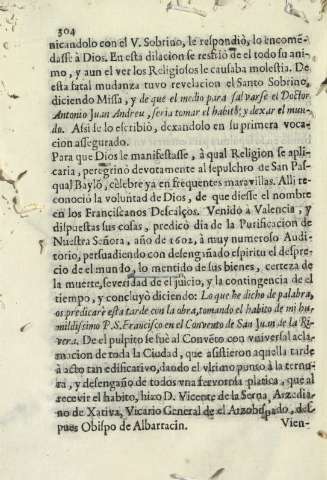 304
nicandolo con el V. Sobrino, le respondiò, lo encomẽ-
dasse à Dios. En esta dilacion se resfriò de el todo su ani-
mo, y aun el ver los Religiosos le causaba molestia. De
esta fatal mudanza tuvo revelacion el Santo Sobrino,
diciendo Missa, y de que el medio para salvarse el Doctor
Antonio Juan Andreu, seria tomar el habito, y dexar el mun-
do. Assi se lo escribiò, dexandolo en su primera voca-
cion assegurado.
Para que Dios le manifestasse, à qual Religion se apli-
caria, peregrinò devotamente al sepulchro de San Pas-
qual Baylò, celebre ya en frequentes maravillas. Alli re-
conociò la voluntad de Dios, de que diesse el nombre
en los Franciscanos Descalços. Venido à Valencia, y
dispuestas sus cosas, predicò dia de la Purificacion de
Nuestra Señora, año de 1602, à muy numeroso Audi-
torio, persuadiendo con desengañado espiritu el despre-
cio de el mundo, lo mentido de sus bienes, certeza de
la muerte, severidad de el juicio, y la contingencia de el
tiempo, y concluyò diciendo: Lo que he dicho de palabra,
os predicarè esta tarde con la obra, tomando el habito de mi hu-
mildissimo P.S. Francisco en el Convento de San Juan de la Ri-
vera. De el pulpito se fuè al Convẽto con vniversal acla-
macion de toda la Ciudad, que assistieron aquella tarde
à acto tan edificativo, dando el vltimo punto à la ternu-
ra, y desengaño de todos vna fervorosa platica, que al
recevir el habito, hizo D. Vicente de la Serna, Arzedia-
no de Xativa, Vicario General de el Arzobispado, des-
pues Obispo de Albarracin.
Vien-